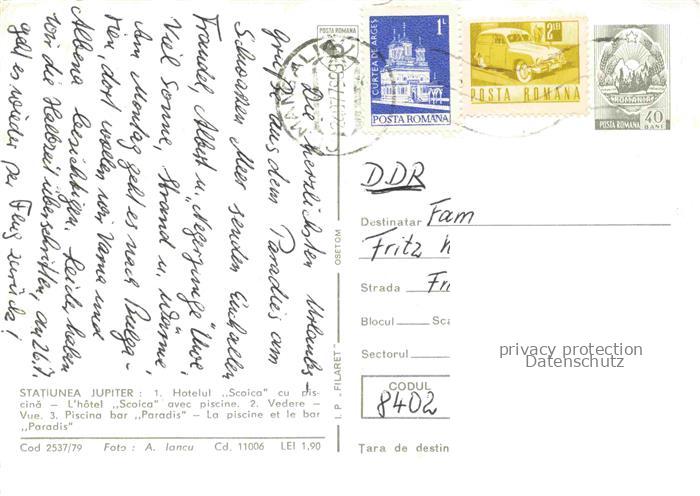 Die herzlichsten Urlaubs-
grüße aus dem Paradies am
Schwarzen Meer senden Euch allen
Traudel, Albert u. „Negerjunge" Uwe.
Viel Sonne, Strand u. Wärme!
Am Montag geht es nach Bulga-
rien, dort wollen wir Varna und
Albena besichtigen. Leider haben
wir die Halbzeit überschritten, am 26.7.
geht es wieder per Flug zurück!
STAŢIUNEA JUPITER : 1. Hotelul „Scoica" cu pis-
cină — L'hôtel „Scoica" avec piscine. 2. Vedere -
Vue. 3. Piscina bar „Paradis" — La piscine et le bar
„Paradis"
Cod 2537/79 Foto : A. Iancu Cd. 11006 LEI 1,90
I. P. „FILARET" OSETOM
POSTA ROMANA
MANGALIA
CURTEA DE ARGES
1L
POSTA ROMANA
2LEI
POSTA ROMANA
ROMANIA
POSTA ROMANA 40 BANI
DDR
Destinatar Fam
Fritz
Strada Fr
Blocul Sca
Sectorul
CODUL
8402
Ţara de destin
privacy protection
Datenschutz